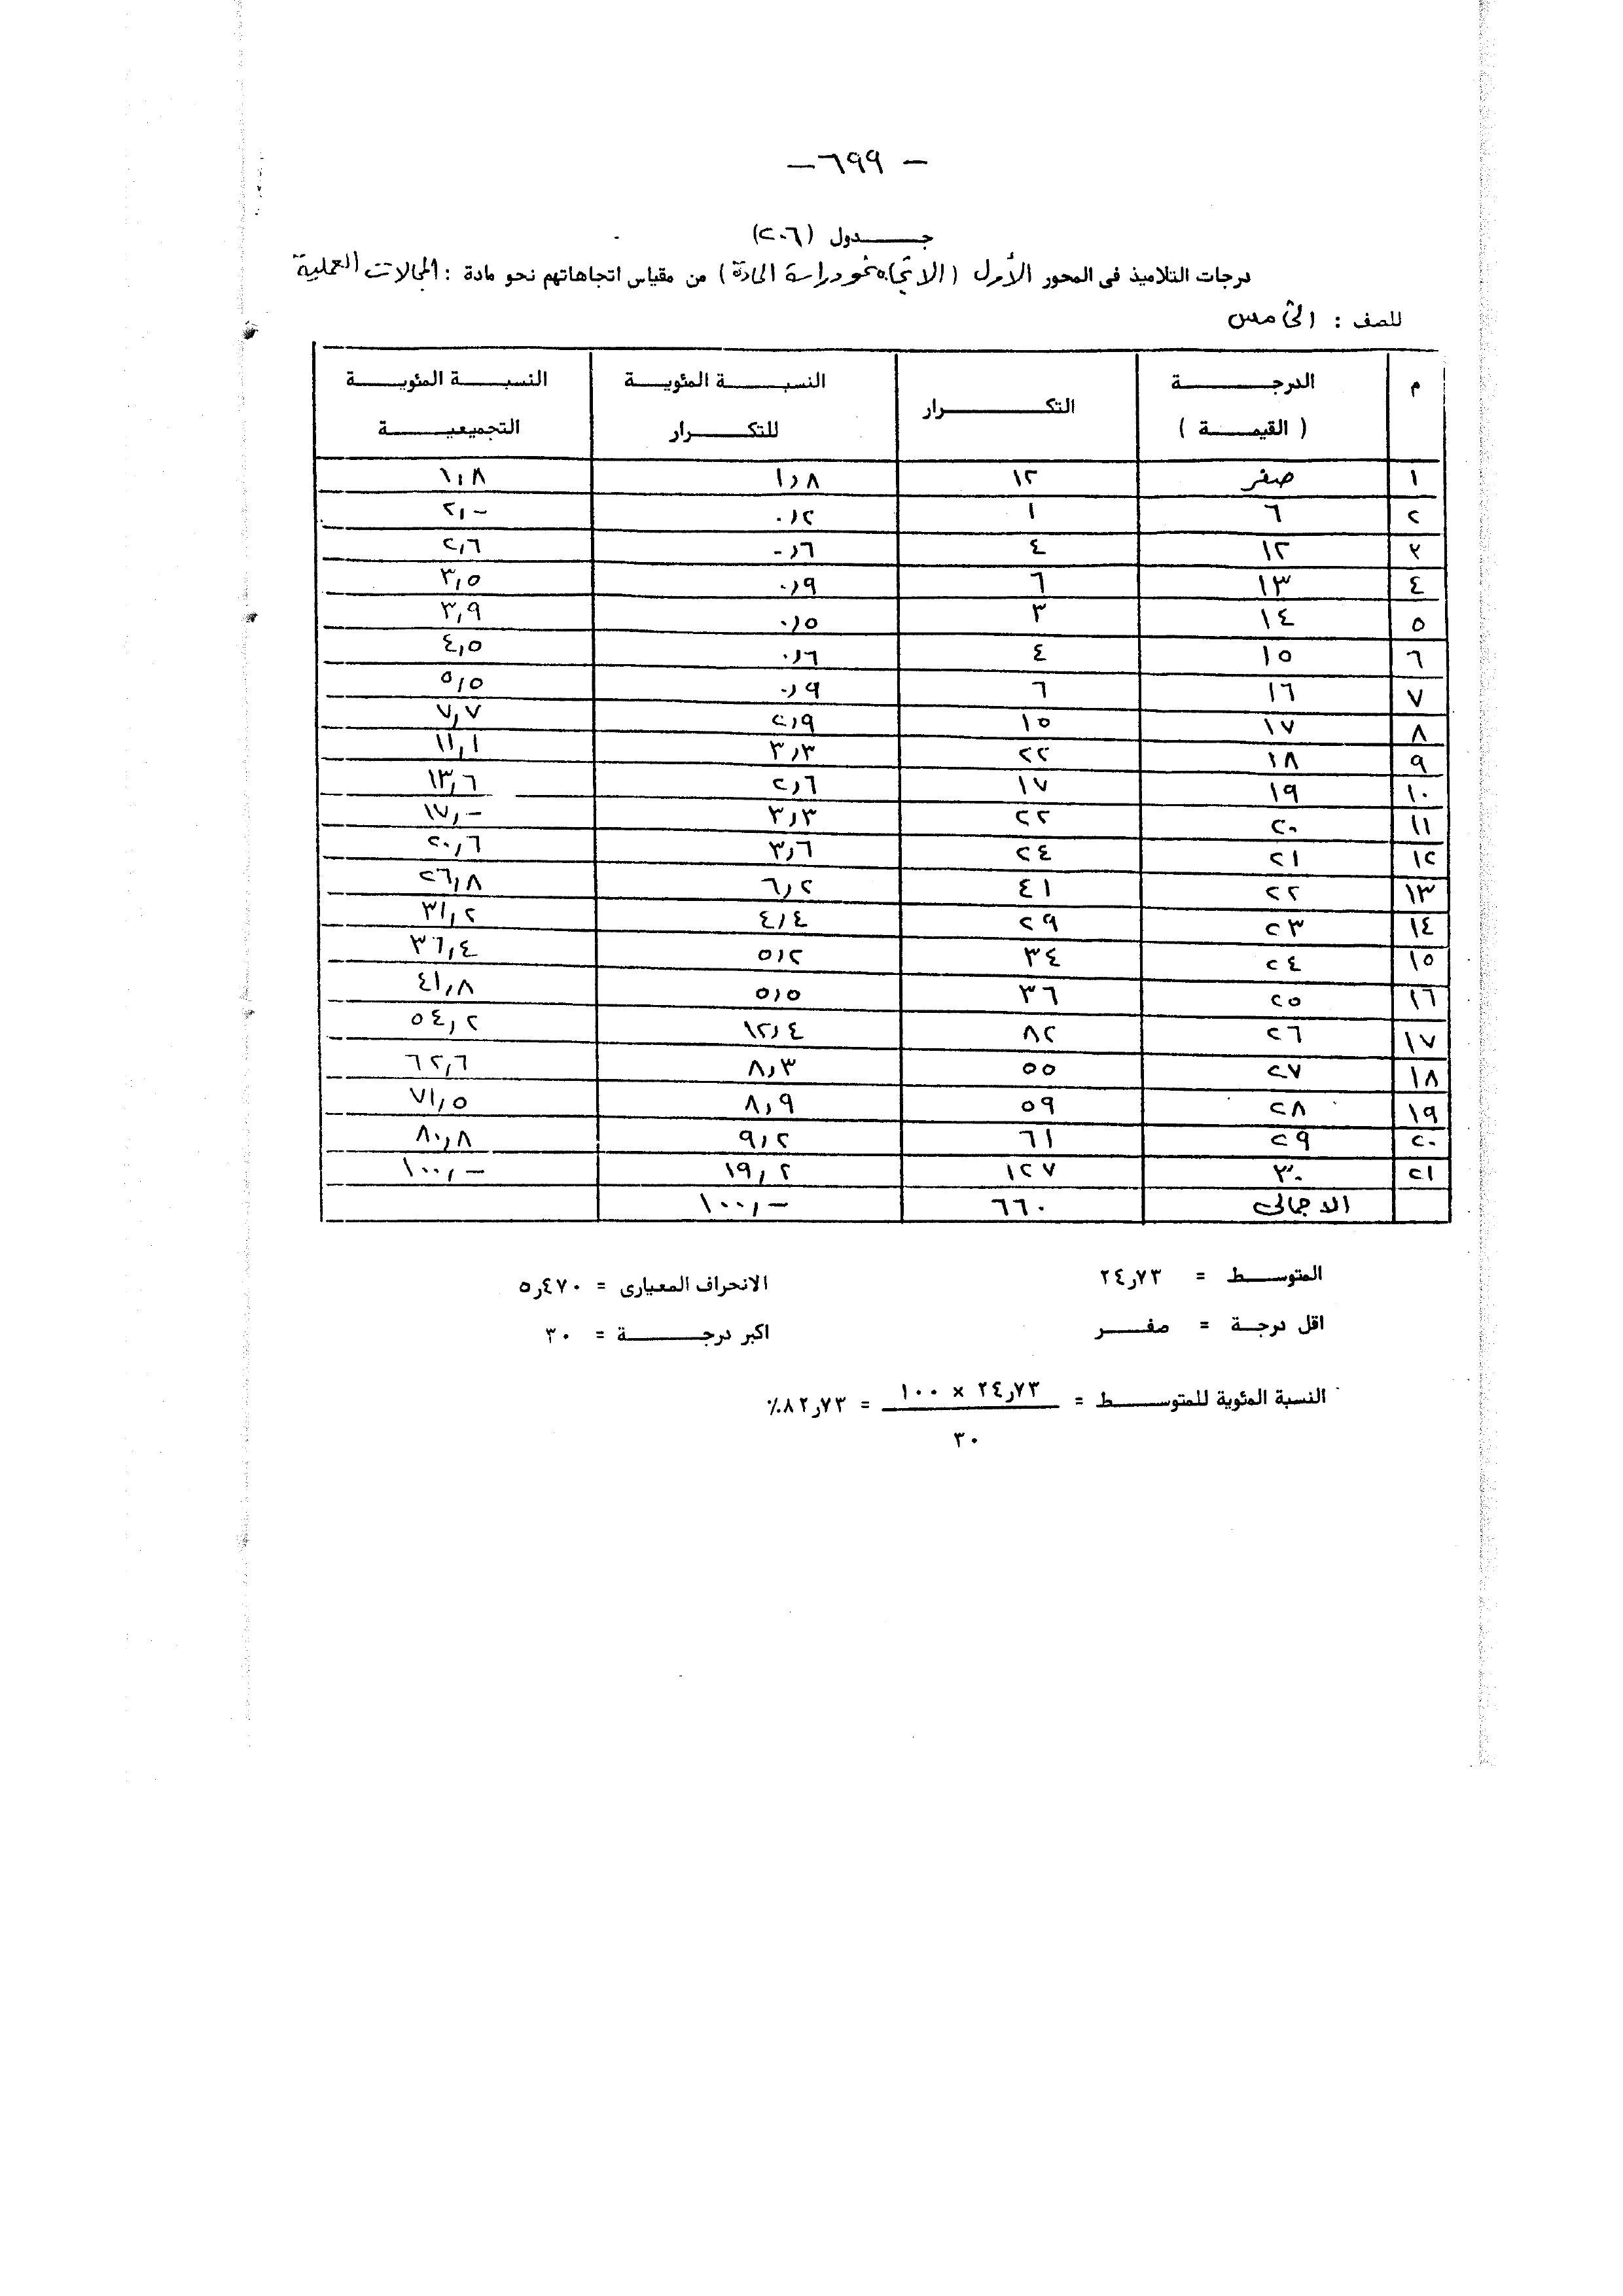 - ٦٩٩ -
جـــدول (٢٠٦)
درجات التلاميذ فى المحور الأول (الاتجاه نحو دراسة المادة) من مقياس اتجاهاتهم نحو مادة : المجالات العملية
للصف : الخامس
م | الدرجــة ( القيمــة ) | التكــرار | النسبــة المئويــة للتكــرار | النسبــة المئويــة التجميعيــة
١ | صفر | ١٢ | ١٫٨ | ١٫٨
٢ | ٦ | ١ | ٠٫٢ | ٢٫-
٣ | ١٢ | ٤ | ٠٫٦ | ٢٫٦
٤ | ١٣ | ٦ | ٠٫٩ | ٣٫٥
٥ | ١٤ | ٣ | ٠٫٥ | ٣٫٩
٦ | ١٥ | ٤ | ٠٫٦ | ٤٫٥
٧ | ١٦ | ٦ | ٠٫٩ | ٥٫٥
٨ | ١٧ | ١٥ | ٢٫٩ | ٧٫٧
٩ | ١٨ | ٢٢ | ٣٫٣ | ١١٫١
١٠ | ١٩ | ١٧ | ٢٫٦ | ١٣٫٦
١١ | ٢٠ | ٢٢ | ٣٫٣ | ١٧٫-
١٢ | ٢١ | ٢٤ | ٣٫٦ | ٢٠٫٦
١٣ | ٢٢ | ٤١ | ٦٫٢ | ٢٦٫٨
١٤ | ٢٣ | ٢٩ | ٤٫٤ | ٣١٫٢
١٥ | ٢٤ | ٣٤ | ٥٫٢ | ٣٦٫٤
١٦ | ٢٥ | ٣٦ | ٥٫٥ | ٤١٫٨
١٧ | ٢٦ | ٨٢ | ١٢٫٤ | ٥٤٫٢
١٨ | ٢٧ | ٥٥ | ٨٫٣ | ٦٢٫٦
١٩ | ٢٨ | ٥٩ | ٨٫٩ | ٧١٫٥
٢٠ | ٢٩ | ٦١ | ٩٫٢ | ٨٠٫٨
٢١ | ٣٠ | ١٢٧ | ١٩٫٢ | ١٠٠٫-
الاجمالى | ٦٦٠ | ١٠٠٫-
المتوســط = ٢٤٫٧٣ الانحراف المعيارى = ٥٫٤٧٠
اقل درجــة = صفــر اكبر درجــة = ٣٠
النسبة المئوية للمتوســط = ٢٤٫٧٣ × ١٠٠ = ٨٢٫٧٣٪
٣٠